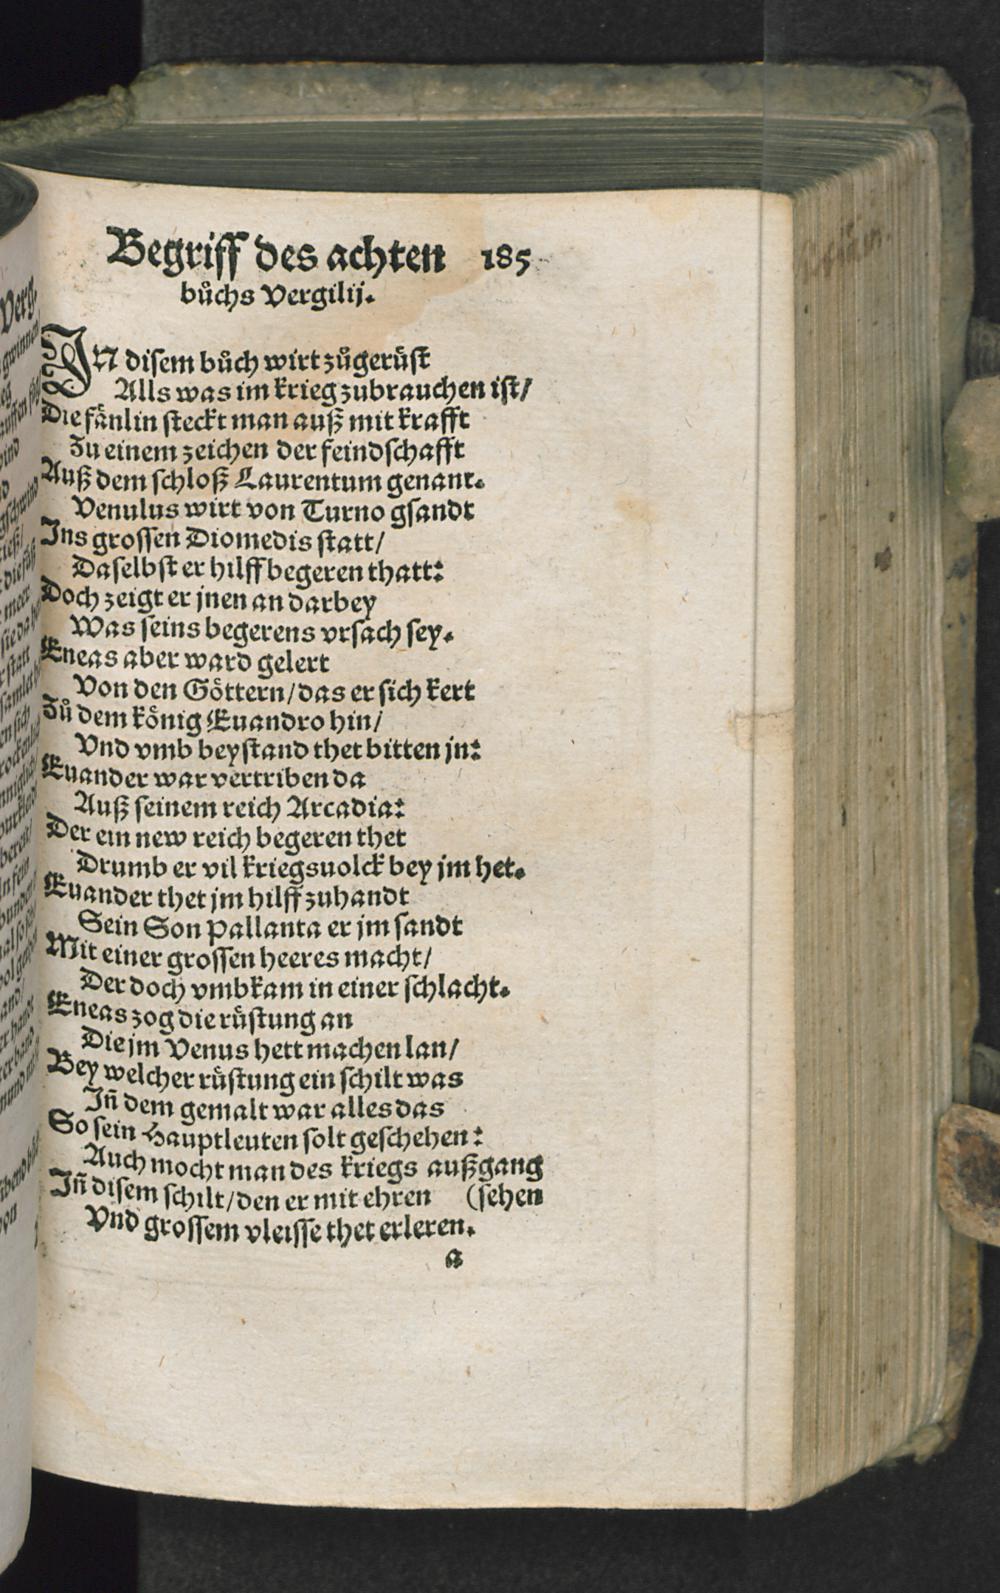 Begriff des achten 185
bůchs Vergilij.
IN disem bůch wirt zůgerüst
Alls was im krieg zubrauchen ist/
Die fånlin steckt man auß mit krafft
Zu einem zeichen der feindschafft
Auß dem schloß Laurentum genant.
Venulus wirt von Turno gsandt
Ins grossen Diomedis statt/
Daselbst er hilff begeren thatt:
Doch zeigt er jnen an darbey
Was seins begerens vrsach sey.
Eneas aber ward gelert
Von den Göttern/das er sich kert
Zů dem könig Euandro hin/
Vnd vmb beystand thet bitten jn:
Euander war vertriben da
Auß seinem reich Arcadia:
Der ein new reich begeren thet
Drumb er vil kriegsuolck bey jm het.
Euander thet jm hilff zuhandt
Sein Son Pallanta er jm sandt
Mit einer grossen heeres macht/
Der doch vmbkam in einer schlacht.
Eneas zog die rüstung an
Die jm Venus hett machen lan/
Bey welcher rüstung ein schilt was
Iñ dem gemalt war alles das
So sein Hauptleuten solt geschehen:
Auch mocht man des kriegs außgang
Iñ disem schilt/den er mit ehren (sehen
Vnd grossem vleisse thet erleren.
a